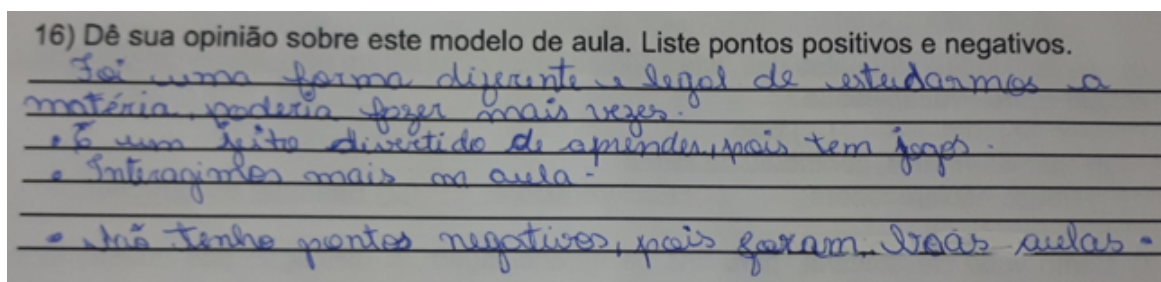 16) Dê sua opinião sobre este modelo de aula. Liste pontos positivos e negativos.
Foi uma forma diferente e legal de estudarmos a
matéria, poderia fazer mais vezes.
• É um jeito divertido de aprender, pois tem jogos.
• Interagimos mais na aula.
• Não tenho pontos negativos, pois foram boas aulas.